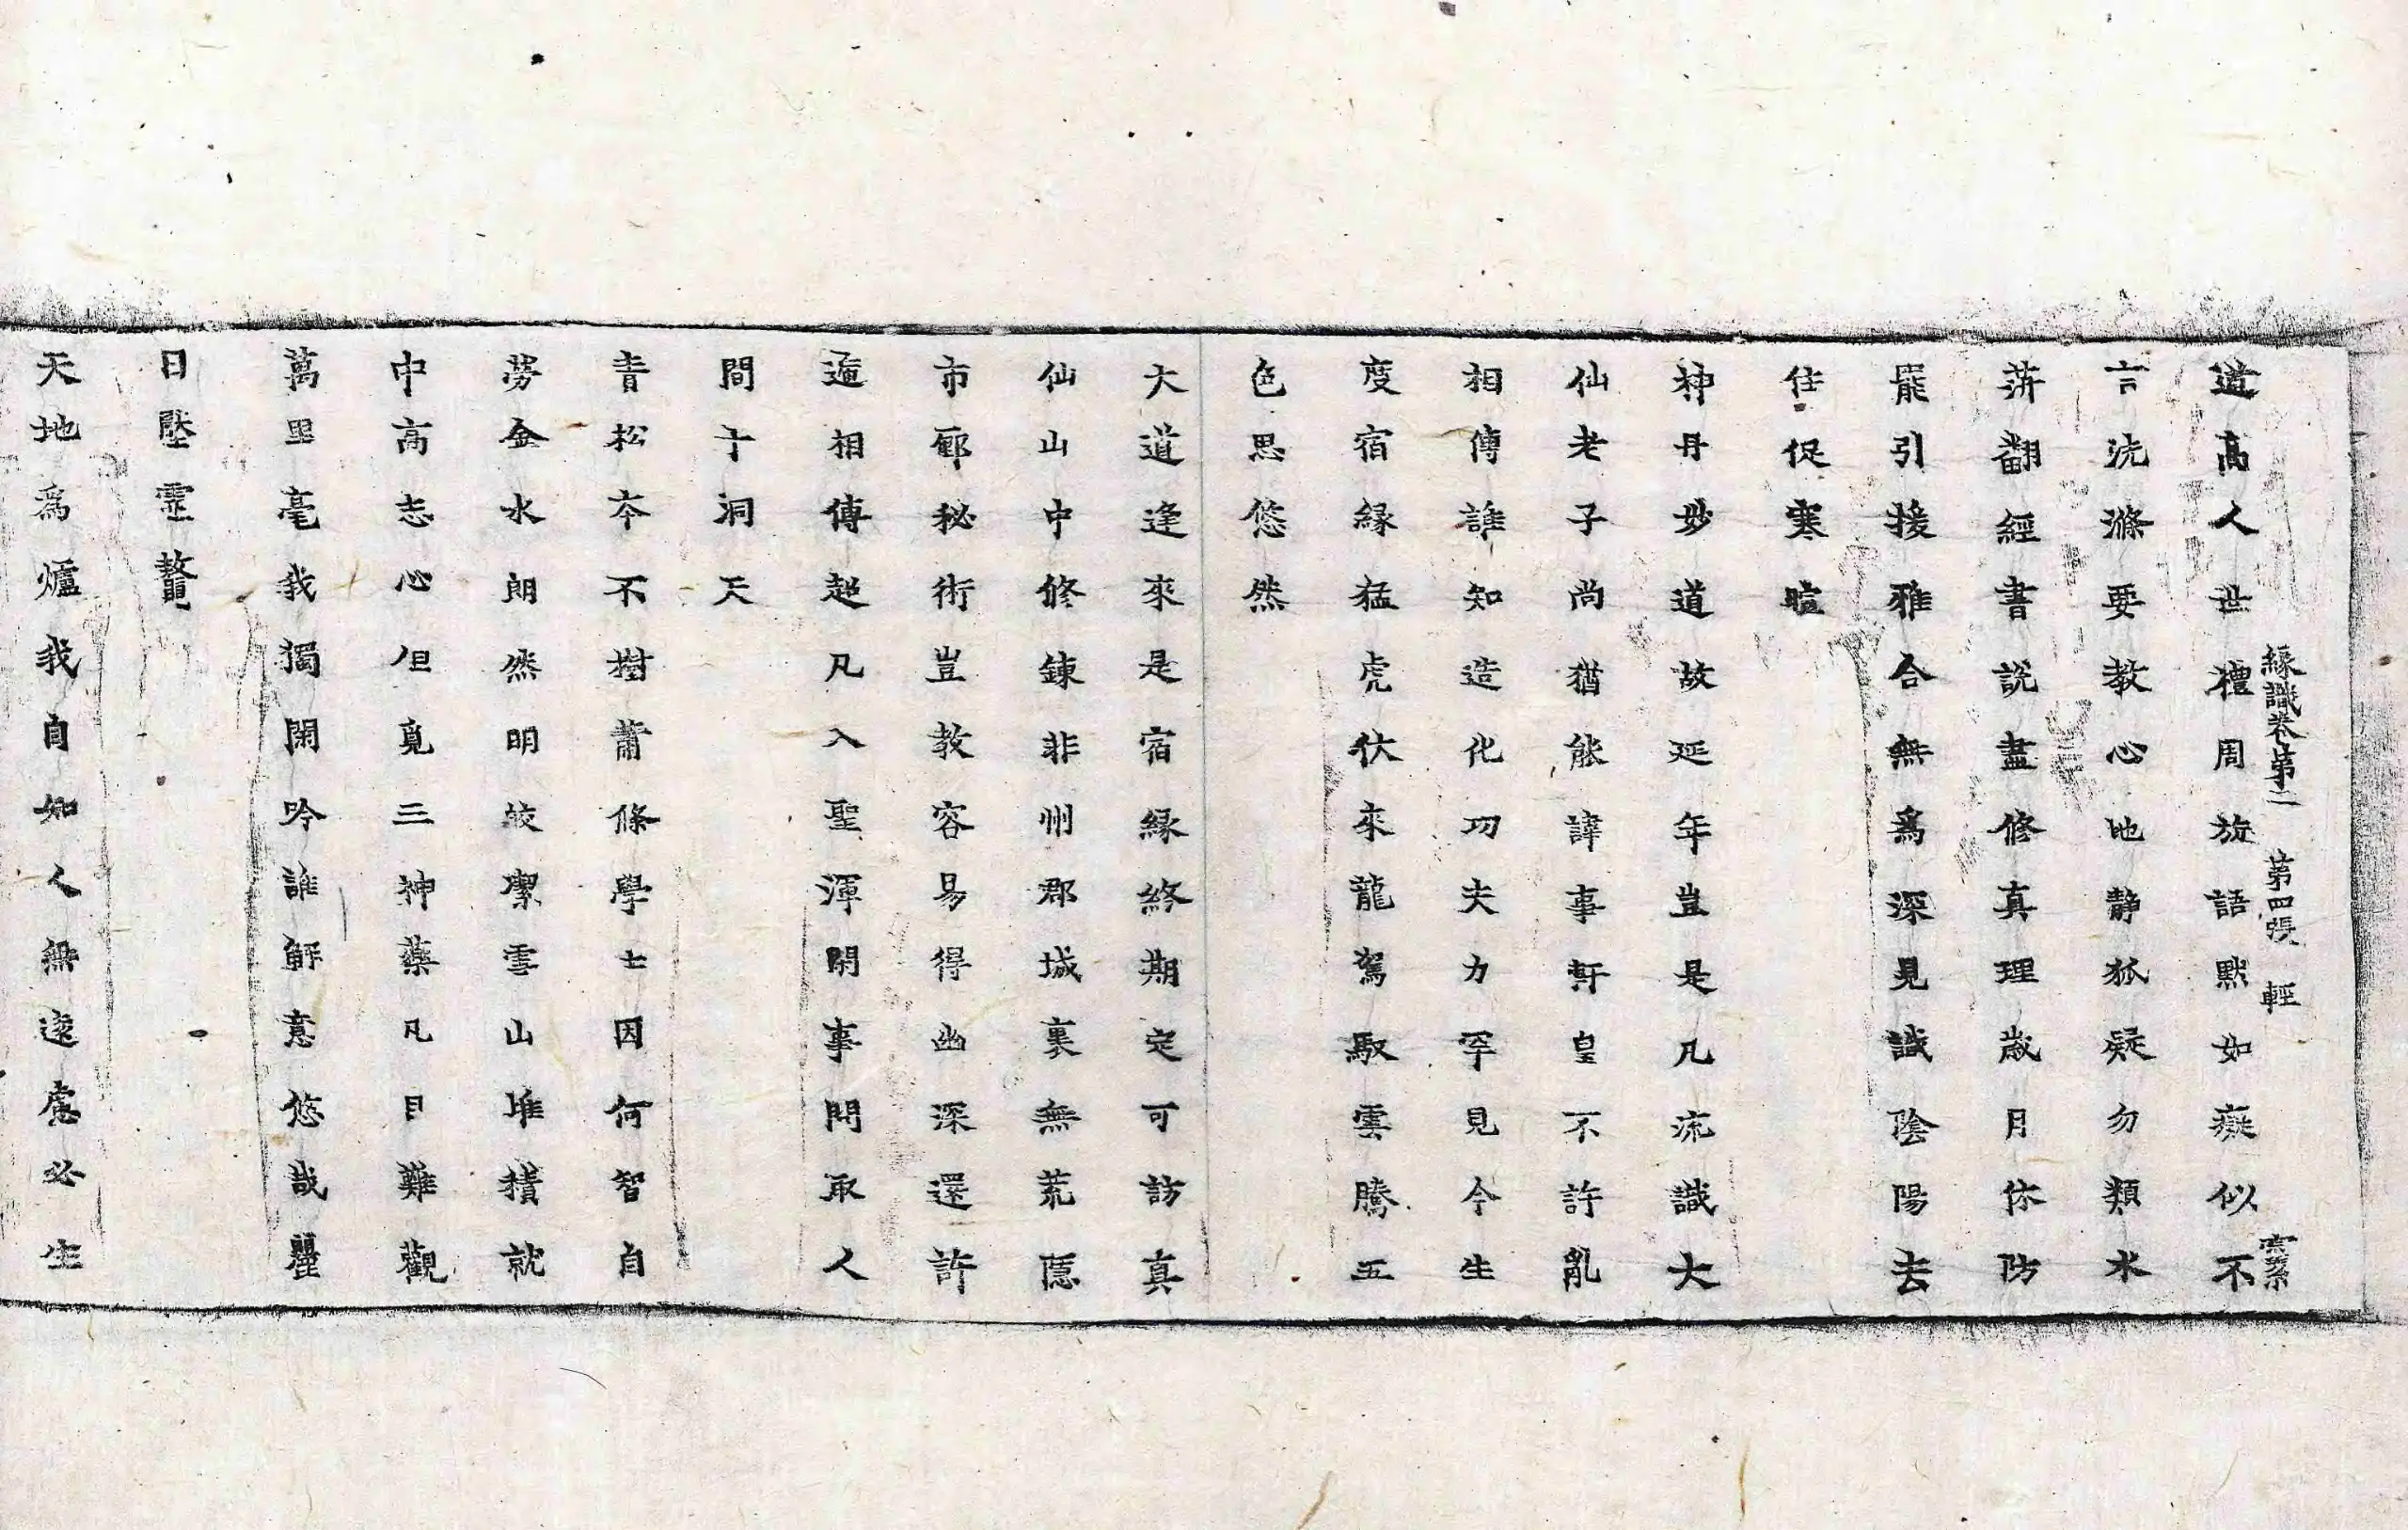 緣識卷第二 第四張 輕
道高人世禮周旋語默如癡似不
言洗滌要教心地靜狐疑勿類水
萍翻經書說盡修真理歲月休防
罷引接雅合無爲深見識陰陽去
住促寒暄
神丹妙道故延年豈是凡流識大
仙老子尚猶能諱事軒皇不許亂
相傳誰知造化功夫力罕見今生
度宿緣猛虎伏來龍駕馭雲騰五
色思悠然
大道逢來是宿緣終期定可訪真
仙山中修鍊非州郡城裏無荒隱
市鄽秘術豈教容易得幽深還許
遞相傳超凡入聖渾閑事問取人
間于洞天
青松本不樹蕭條學士因何智自
勞金水朗然明皎潔雪山堆積就
中高志心但覓三神藥凡目難觀
萬里毫我獨閑吟誰解意悠哉
日壓靈鼇
天地爲爐我自如人無遠慮必生